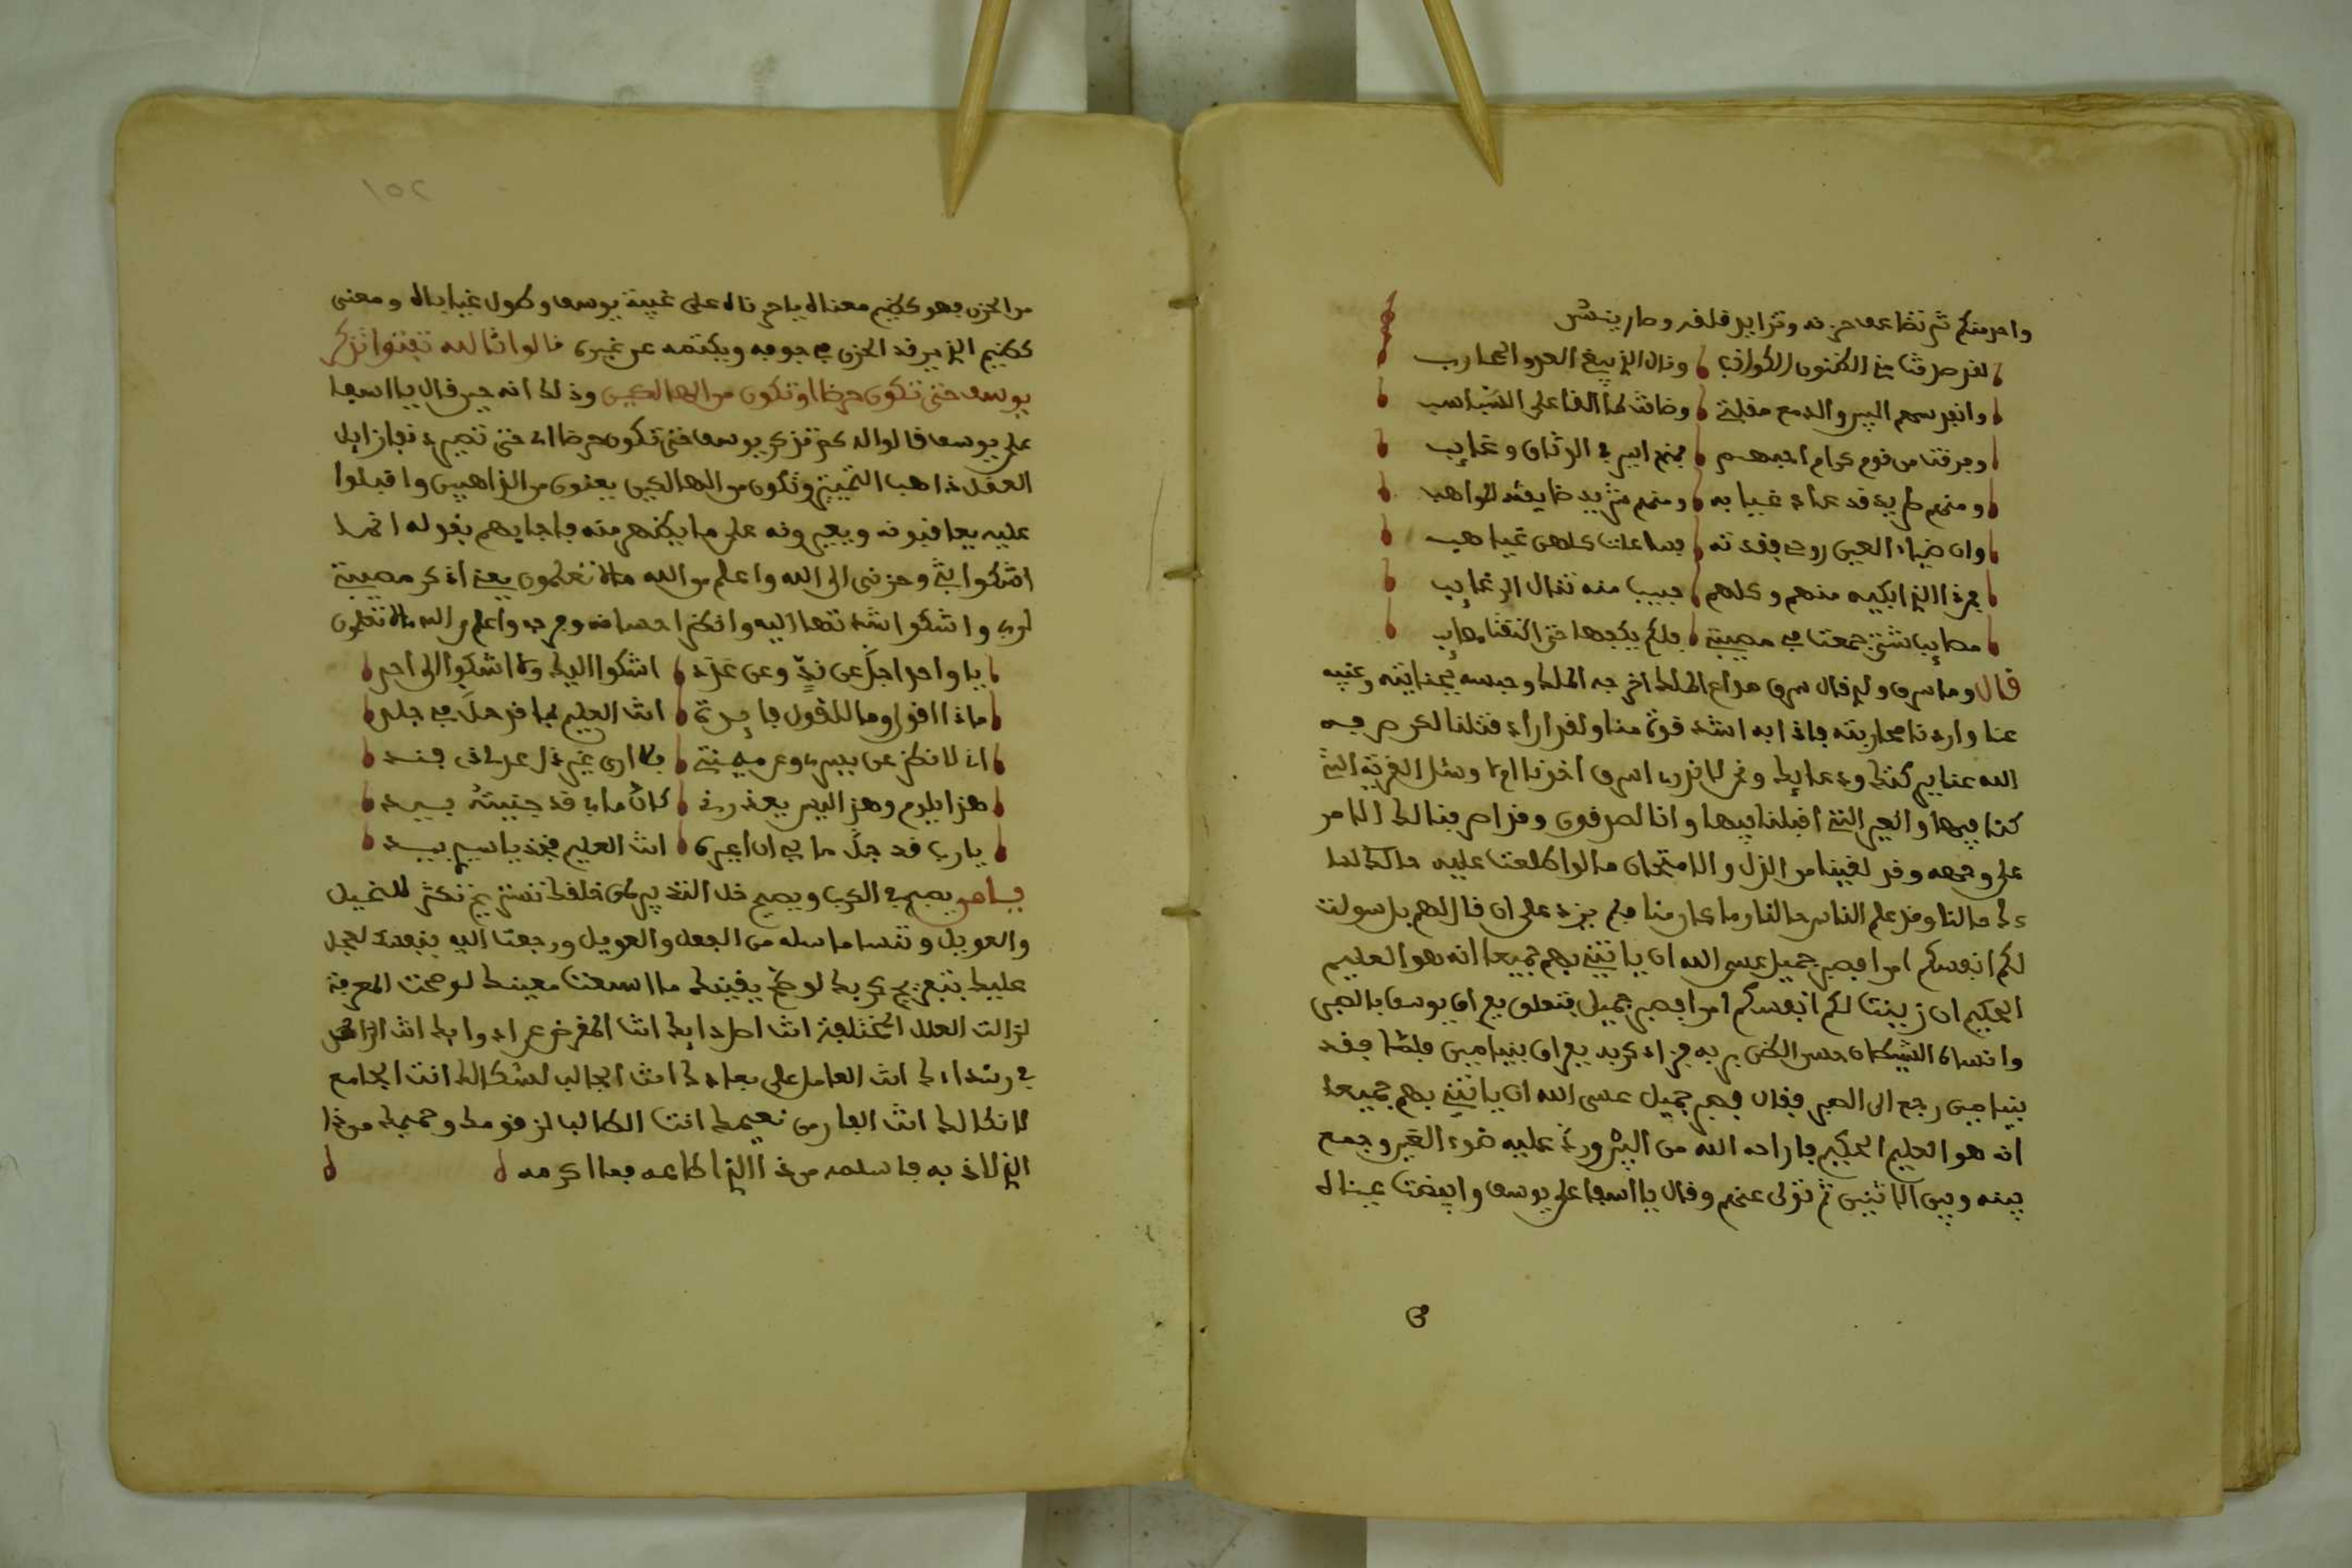 واحد منكم ثم تضاعف حزنه وتزايد قلقه وصار ينشد
لقد صدقت من الظنون الكواذب ونال الذي يبغي العدو المحارب
وانفد سهم البين والدمع مقلتي وضاقت لما القا علي السباسب
وفرقت من قوم كرام احبهم فمنهم اسير في الوثاق وغايب
ومنهم طريد قد عداء غيابه ومنهم شريد ضايقته المواهب
وان ضياء العين روحي فقدته فساعات كلهن غياهب
فمن ذا الذي ابكيه منهم وكلهم حبيب منه تنال الرغايب
مصايب شتى جمعت في مصيبة فلم يكفها حتى اتتنا مصايب
قال وما سرق ولد قال سرق صواع الملك اخرجه الملك وحبسه بجنايته وغيبه
عنا واردنا محاربته فاذا به اشد قوة منا ولقد اراد قتلنا لكن صرفه
الله عنا ببركتك ودعايك ونحن لما نزل اسرق اخونا ام لا وسل القرية التي
كنا فيها والعير التي اقبلنا فيها وانا لصدقون وقد اصر فنا لك الامر
على وجهه وقد لقينا من الذل والامتحان ما لو اطلعت عليه حالك لسا
ءك حالنا وقد علم الناس حالنا وما صار منا فلم يزد على ان قال لهم بل سولت
لكم انفسكم امرا فصبر جميل عسى الله ان ياتيني بهم جميعا انه هو العليم
الحكيم ان زينت لكم انفسكم امرا فصبر جميل فتعلق بفراق يوسف بالصبر
وانساه الشيطان حسن الظن بربه فزاد كربه بفراق بنيامين فلما فقد
بنيامين رجع الى الصبر فقال فصبر جميل عسى الله ان ياتيني بهم جميعا
انه هو العليم الحكيم فاراحه الله من البث ورد عليه ضوء القمر وجمع
بينه وبين الاثنين ثم تولى عنهم وقال يا اسفا على يوسف وابيضت عيناه
من الحزن فهو كظيم معناه يا حزناه على غيبة يوسف وطول غيابه ومعنى
كظيم الذي يرقد الحزن في جوفه ويكتمه عن غيره قالوا تالله تفتوا تذكر
يوسف حتى تكون حرضا او تكون من الهالكين وذلك انه حين قال يا اسفا
على يوسف قالوا له كم تذكر يوسف حتى تكون حرضا اي حتى تصير زايل
العقل ذاهب التمييز وتكون من الهالكين يعنون من الذاهبين واقبلوا
عليه يعاتبونه ويعيرونه على ما يظهر منه فاجابهم بقوله انما
اشكوا بثي وحزني الى الله واعلم من الله ما لا تعلمون يعني اذكر مصيبتي
لربي واشكوا شدتها اليه وانتظر احسانه وفرجه واعلم من الله ما لا تعلمون
يا واحدا جل عن ند وعن عدد اشكوا اليك ولا اشكوا الى احد
ماذا اقول وما للقول فايدة انت العليم بما قد حل في جلد
اي لانظر عن يسر وعن ميمنة فلا ارى غير ذل عن فند
هذا يلوم وهذا ليس يعذرني كان ما بي قد جنيته بيد
يا رب قد جل ما بي ان اغيره انت العليم فخذ يا سيدي بيد
يصبر في الكرب ويصيح خل
والعويل وتنسا ما سله من الجهل والعويل ورجعت اليه بنفسك لعجل
عليك بتفريج كربك لو صح يقينك ما اتسعت معينك لو صحت المعرفة
لزالت العلل المختلفة انت اصل دايك انت المعرض عن ادوايك انت الزاهد
في رشدك انت العامل على بعادك انت الجالب لشكالك انت الجامع
لانكالك انت الفار من نعيمك انت الطالب لزقومك وحميمك من ذا
الذي لاذ به فاسلمه من ذا الذي اطاعه فما اكرمه